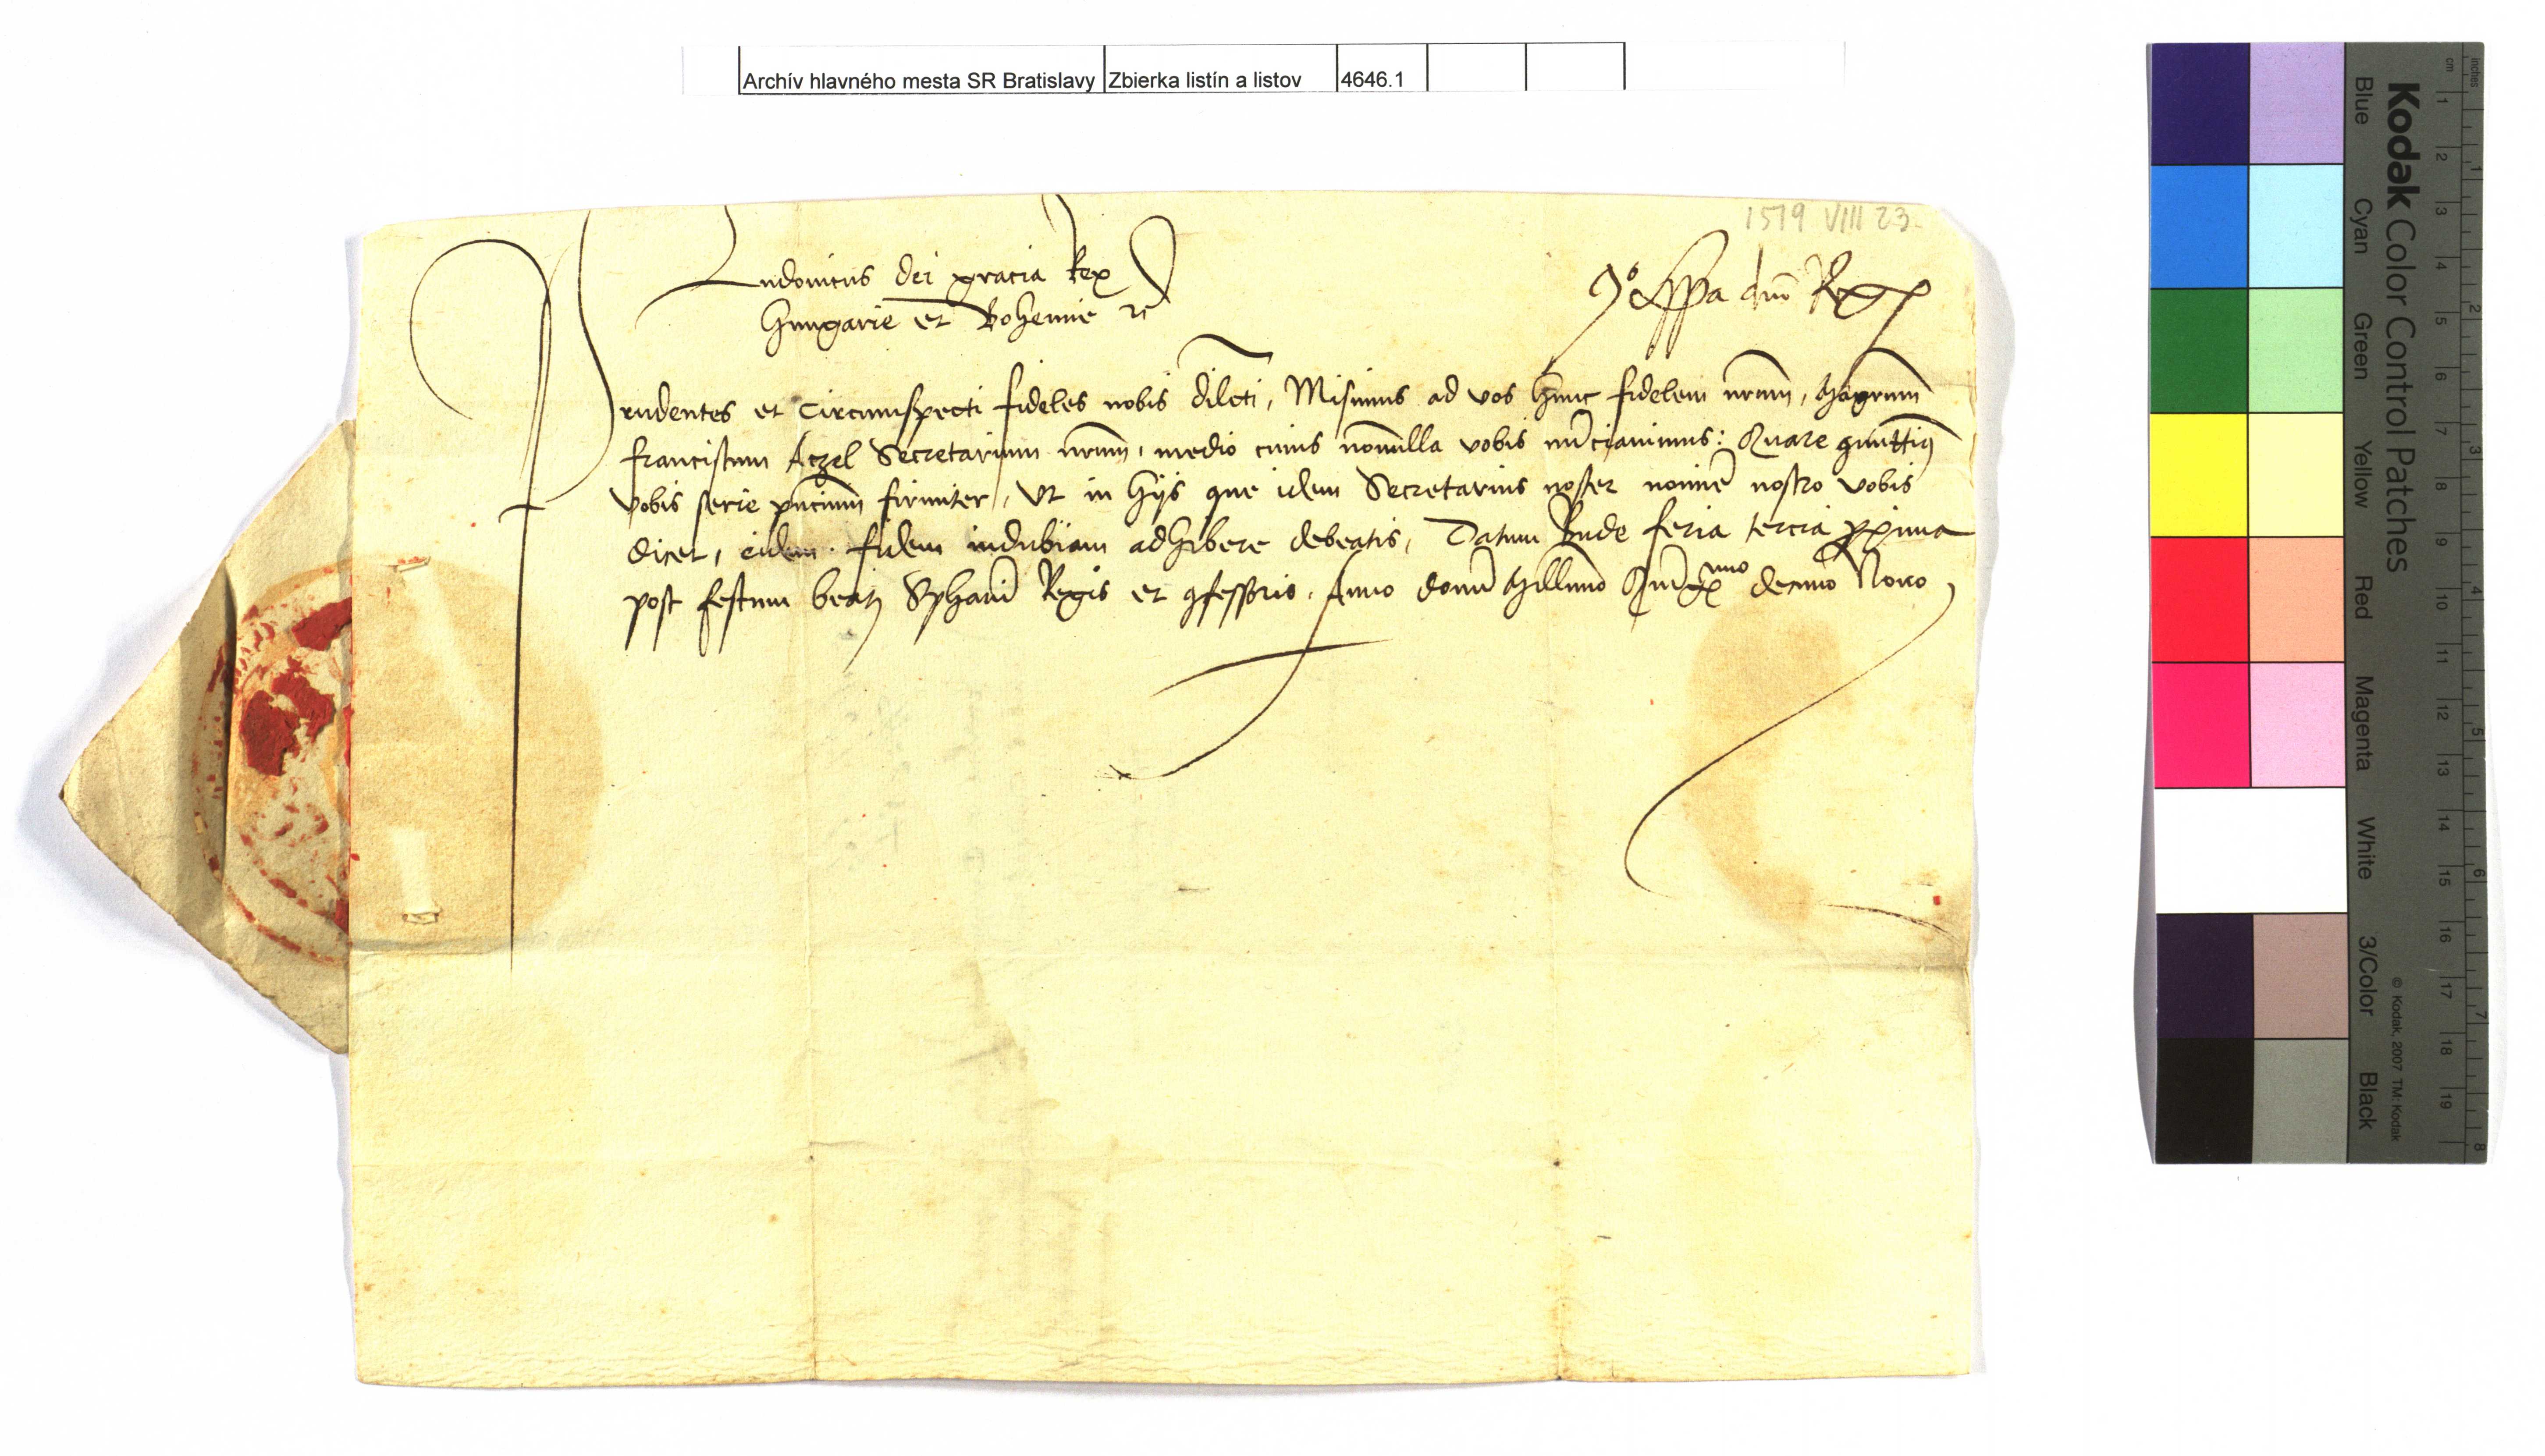 Archív hlavného mesta SR Bratislavy Zbierka listín a listov 4646.1
1519 VIII 23.
Ludovicus dei gracia Rex
Hungarie et Bohemie
Prudentes et Circumspecti fideles nobis dilecti, Misimus ad vos hunc fidelem nrum, Magrum
franciscum Aczel Secretarium nrum, medio cuius nonnulla vobis nunciavimus: Quare
vobis serie pncium firmiter, Ut in hijs que idem Secretarius noster nomine nostro vobis
dicet, eidem fidem indubiam adhibere debeatis, Datum Bude feria tercia pxima
post festum beati Stephani Regis et confessoris. Anno domini Millimo Quingmo decimo Nono
Kodak Color Control Patches
Blue Cyan Green Yellow Red Magenta White 3/Color Black
© Kodak, 2007 TM: Kodak
inches 1 2 3 4 5 6 7 8
cm 1 2 3 4 5 6 7 8 9 10 11 12 13 14 15 16 17 18 19